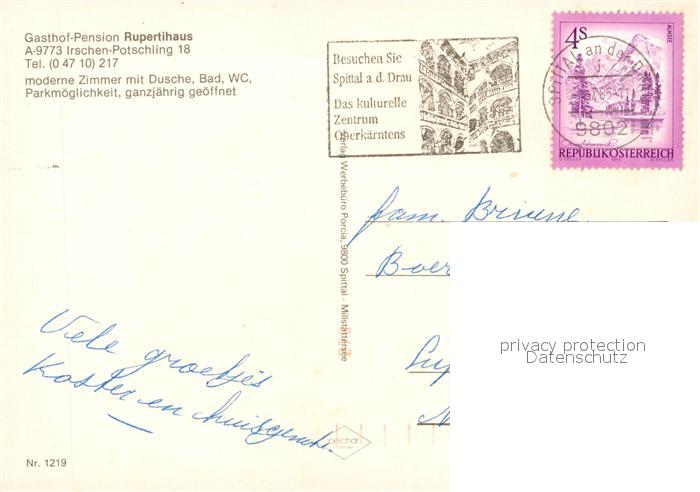 Gasthof-Pension Rupertihaus
A-9773 Irschen-Potschling 18
Tel. (0 47 10) 217
moderne Zimmer mit Dusche, Bad, WC,
Parkmöglichkeit, ganzjährig geöffnet
Besuchen Sie
Spittal a.d. Drau
Das kulturelle
Zentrum
Oberkärntens
4S
ALMSEE
REPUBLIK ÖSTERREICH
SPITTAL an der
9802
Verlag Werbebüro Porcia, 9800 Spittal - Millstättersee
fam. Brisune
Boer
Viele groetjes
Koster en huisgenoten
privacy protection
Datenschutz
pechar
Nr. 1219